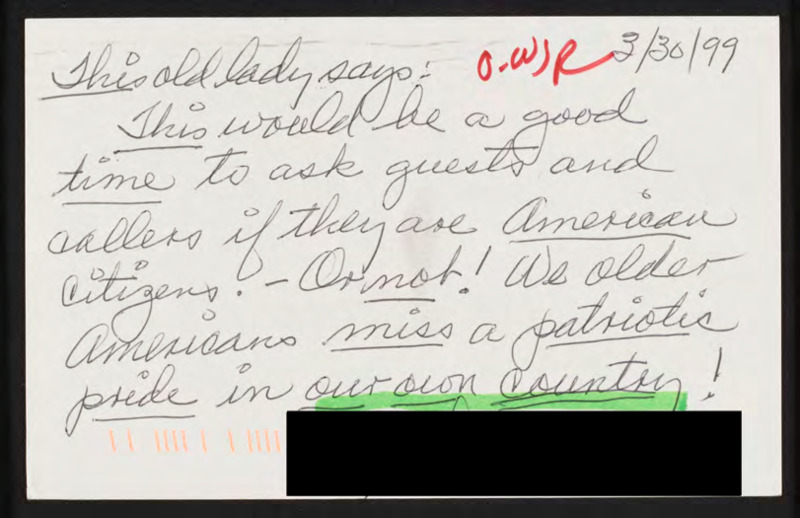 This old lady says: O-WJR 3/30/99
This would be a good
time to ask guests and
callers if they are American
citizens. - Or not! We older
Americans miss a patriotic
pride in our own country!